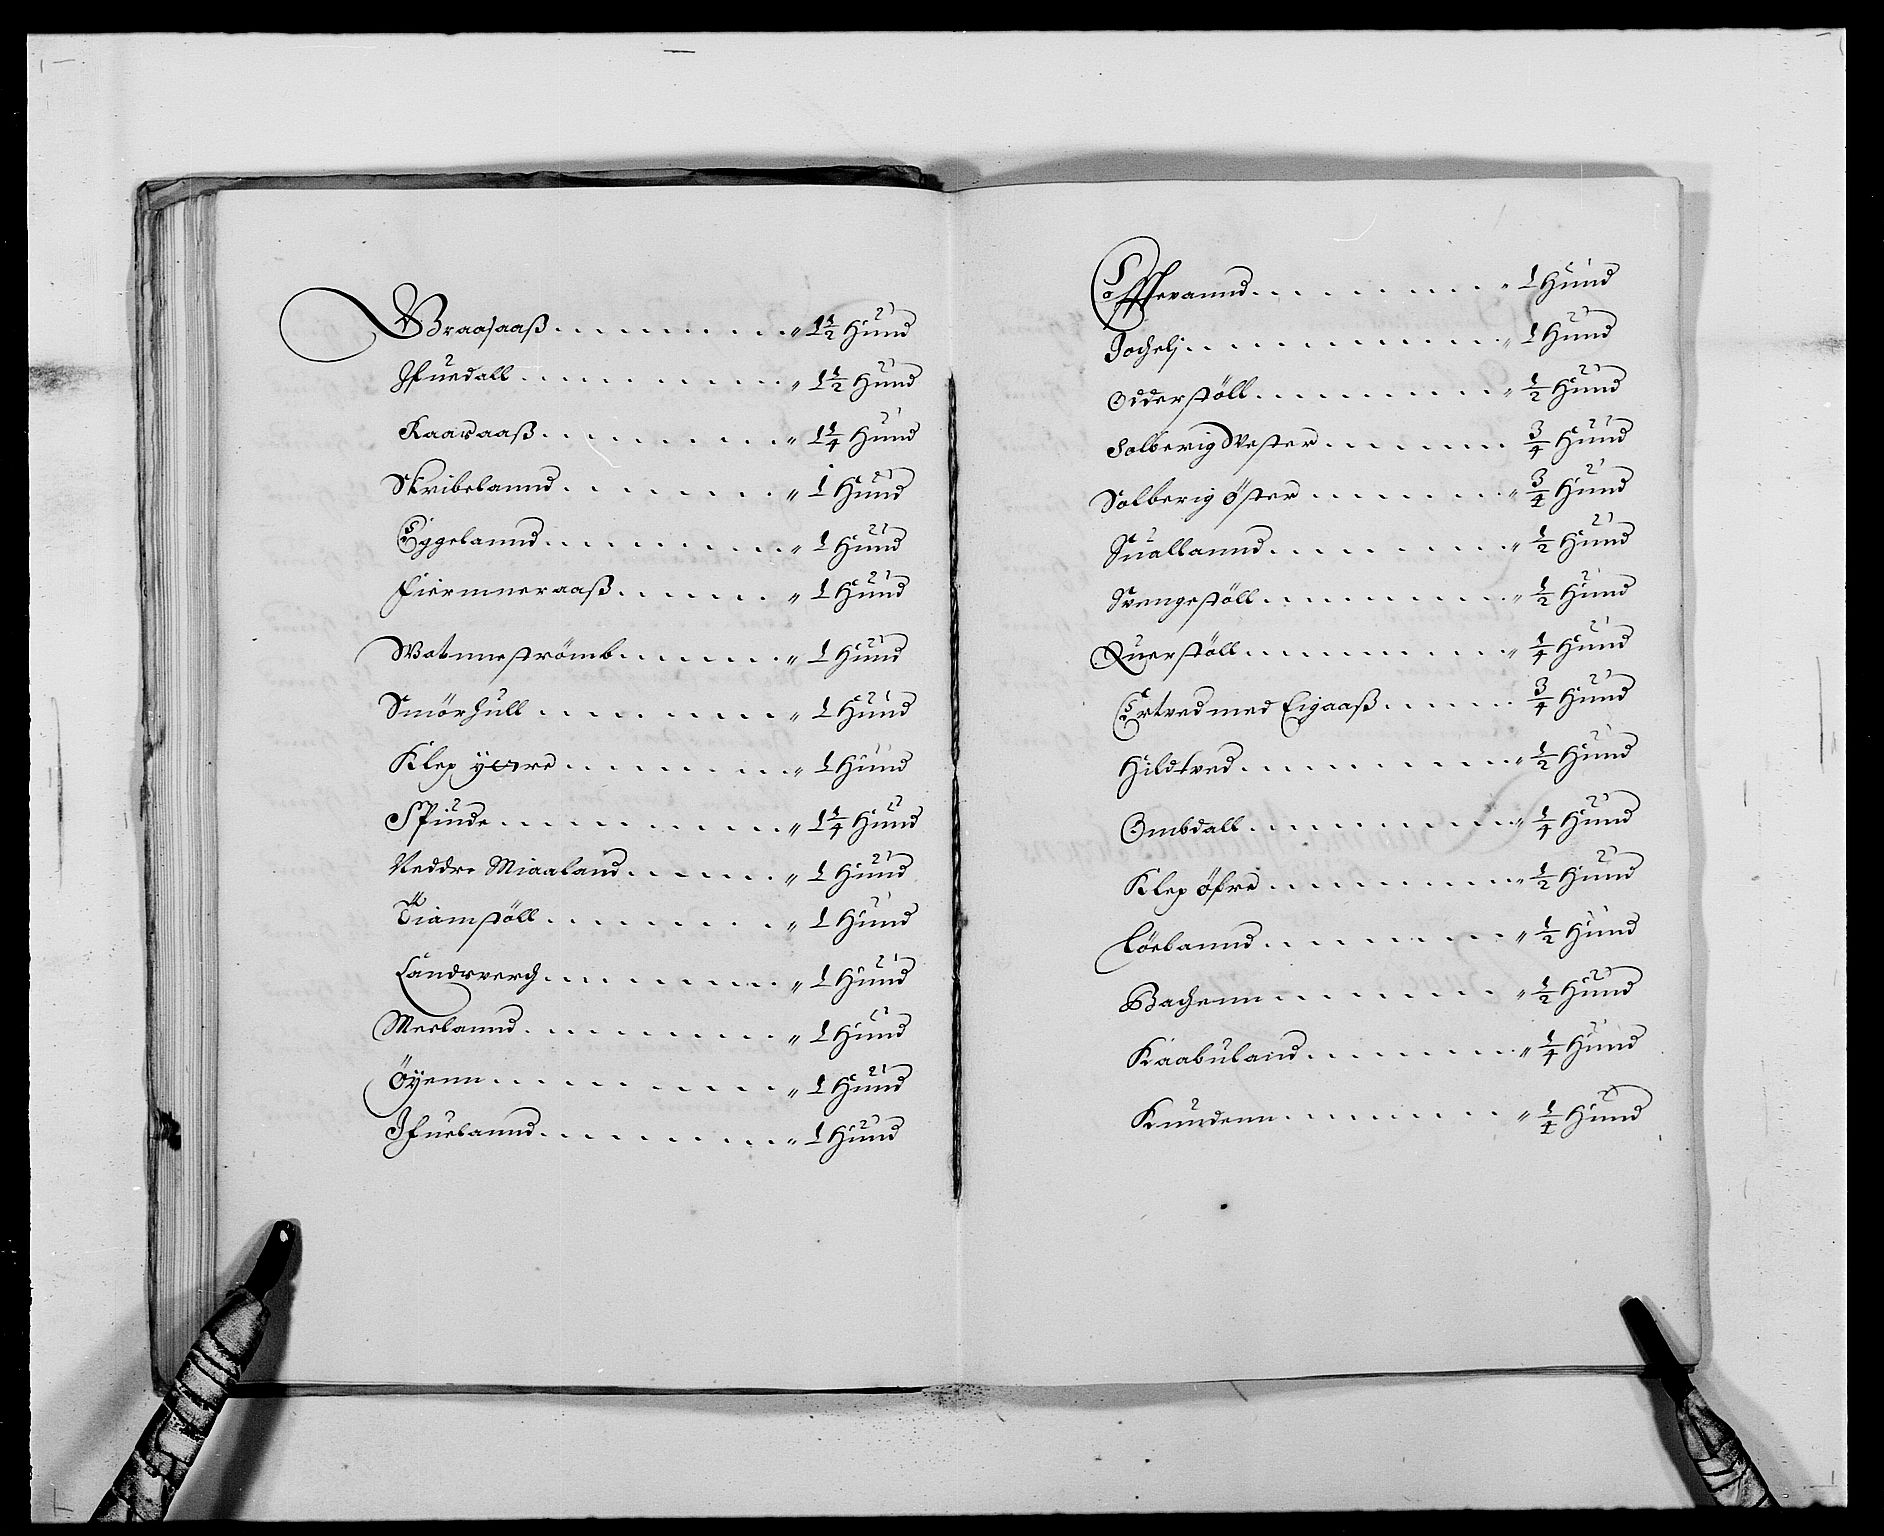 Braasaaß . . . . . . . . . . „ 1 1/2 Hund
Ifuedall . . . . . . . . . . „ 1 1/2 Hund
Raaraaß . . . . . . . . . . „ 1 1/4 Hund
Skribelannd . . . . . . . . „ 1 Hund
Eggelannd . . . . . . . . . „ 1 Hund
Fiermneraaß . . . . . . „ 1 Hund
Watnneströmb . . . . . . „ 1 Hund
Smörhull . . . . . . . . . „ 1 Hund
Klep ytre . . . . . . . . „ 1 Hund
Spinde . . . . . . . . . . „ 1 1/4 Hund
Neddre Miaaland . . . . . „ 1 Hund
Tiamstöll . . . . . . . . „ 1 Hund
Landverch . . . . . . . . „ 1 Hund
Meelannd . . . . . . . . . „ 1 Hund
Öyenn . . . . . . . . . . „ 1 Hund
Ifuelannd . . . . . . . . „ 1 Hund
Eossevannd . . . . . . . . „ 1 Hund
Jochelj . . . . . . . . . . „ 1 Hund
Odderstöll . . . . . . . . „ 1/2 Hund
Solberig Wester . . . . . . 3/4 Hund
Solberig öster . . . . . . „ 3/4 Hund
Suallannd . . . . . . . . „ 1/2 Hund
Svengestöll . . . . . . . . „ 1/2 Hund
Querstöll . . . . . . . . „ 1/4 Hund
Ertved med Eigaaß . . . . . 3/4 Hund
Hildtved . . . . . . . . . „ 1/2 Hund
Ombdall . . . . . . . . . „ 1/4 Hund
Klep öfre . . . . . . . . „ 1/2 Hund
Löelannd . . . . . . . . „ 1/2 Hund
Bachenn . . . . . . . . „ 1/2 Hund
Kaabuland . . . . . . . „ 1/4 Hund
Kundenn . . . . . . . . „ 1/4 Hund